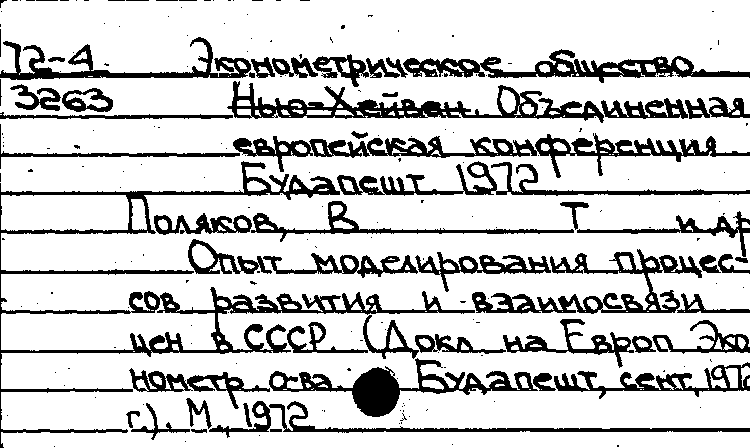 72-4 Эконометрическое общество.
3263 Нью-Хейвен. Объединенная
европейская конференция.
Будапешт. 1972
Поляков, В Т и др
Опыт моделирования процес-
сов развития и взаимосвязи
цен в СССР. (Докл на Европ Эко
нометр. о-ва. Будапешт, сент, 1972
г.). М., 1972